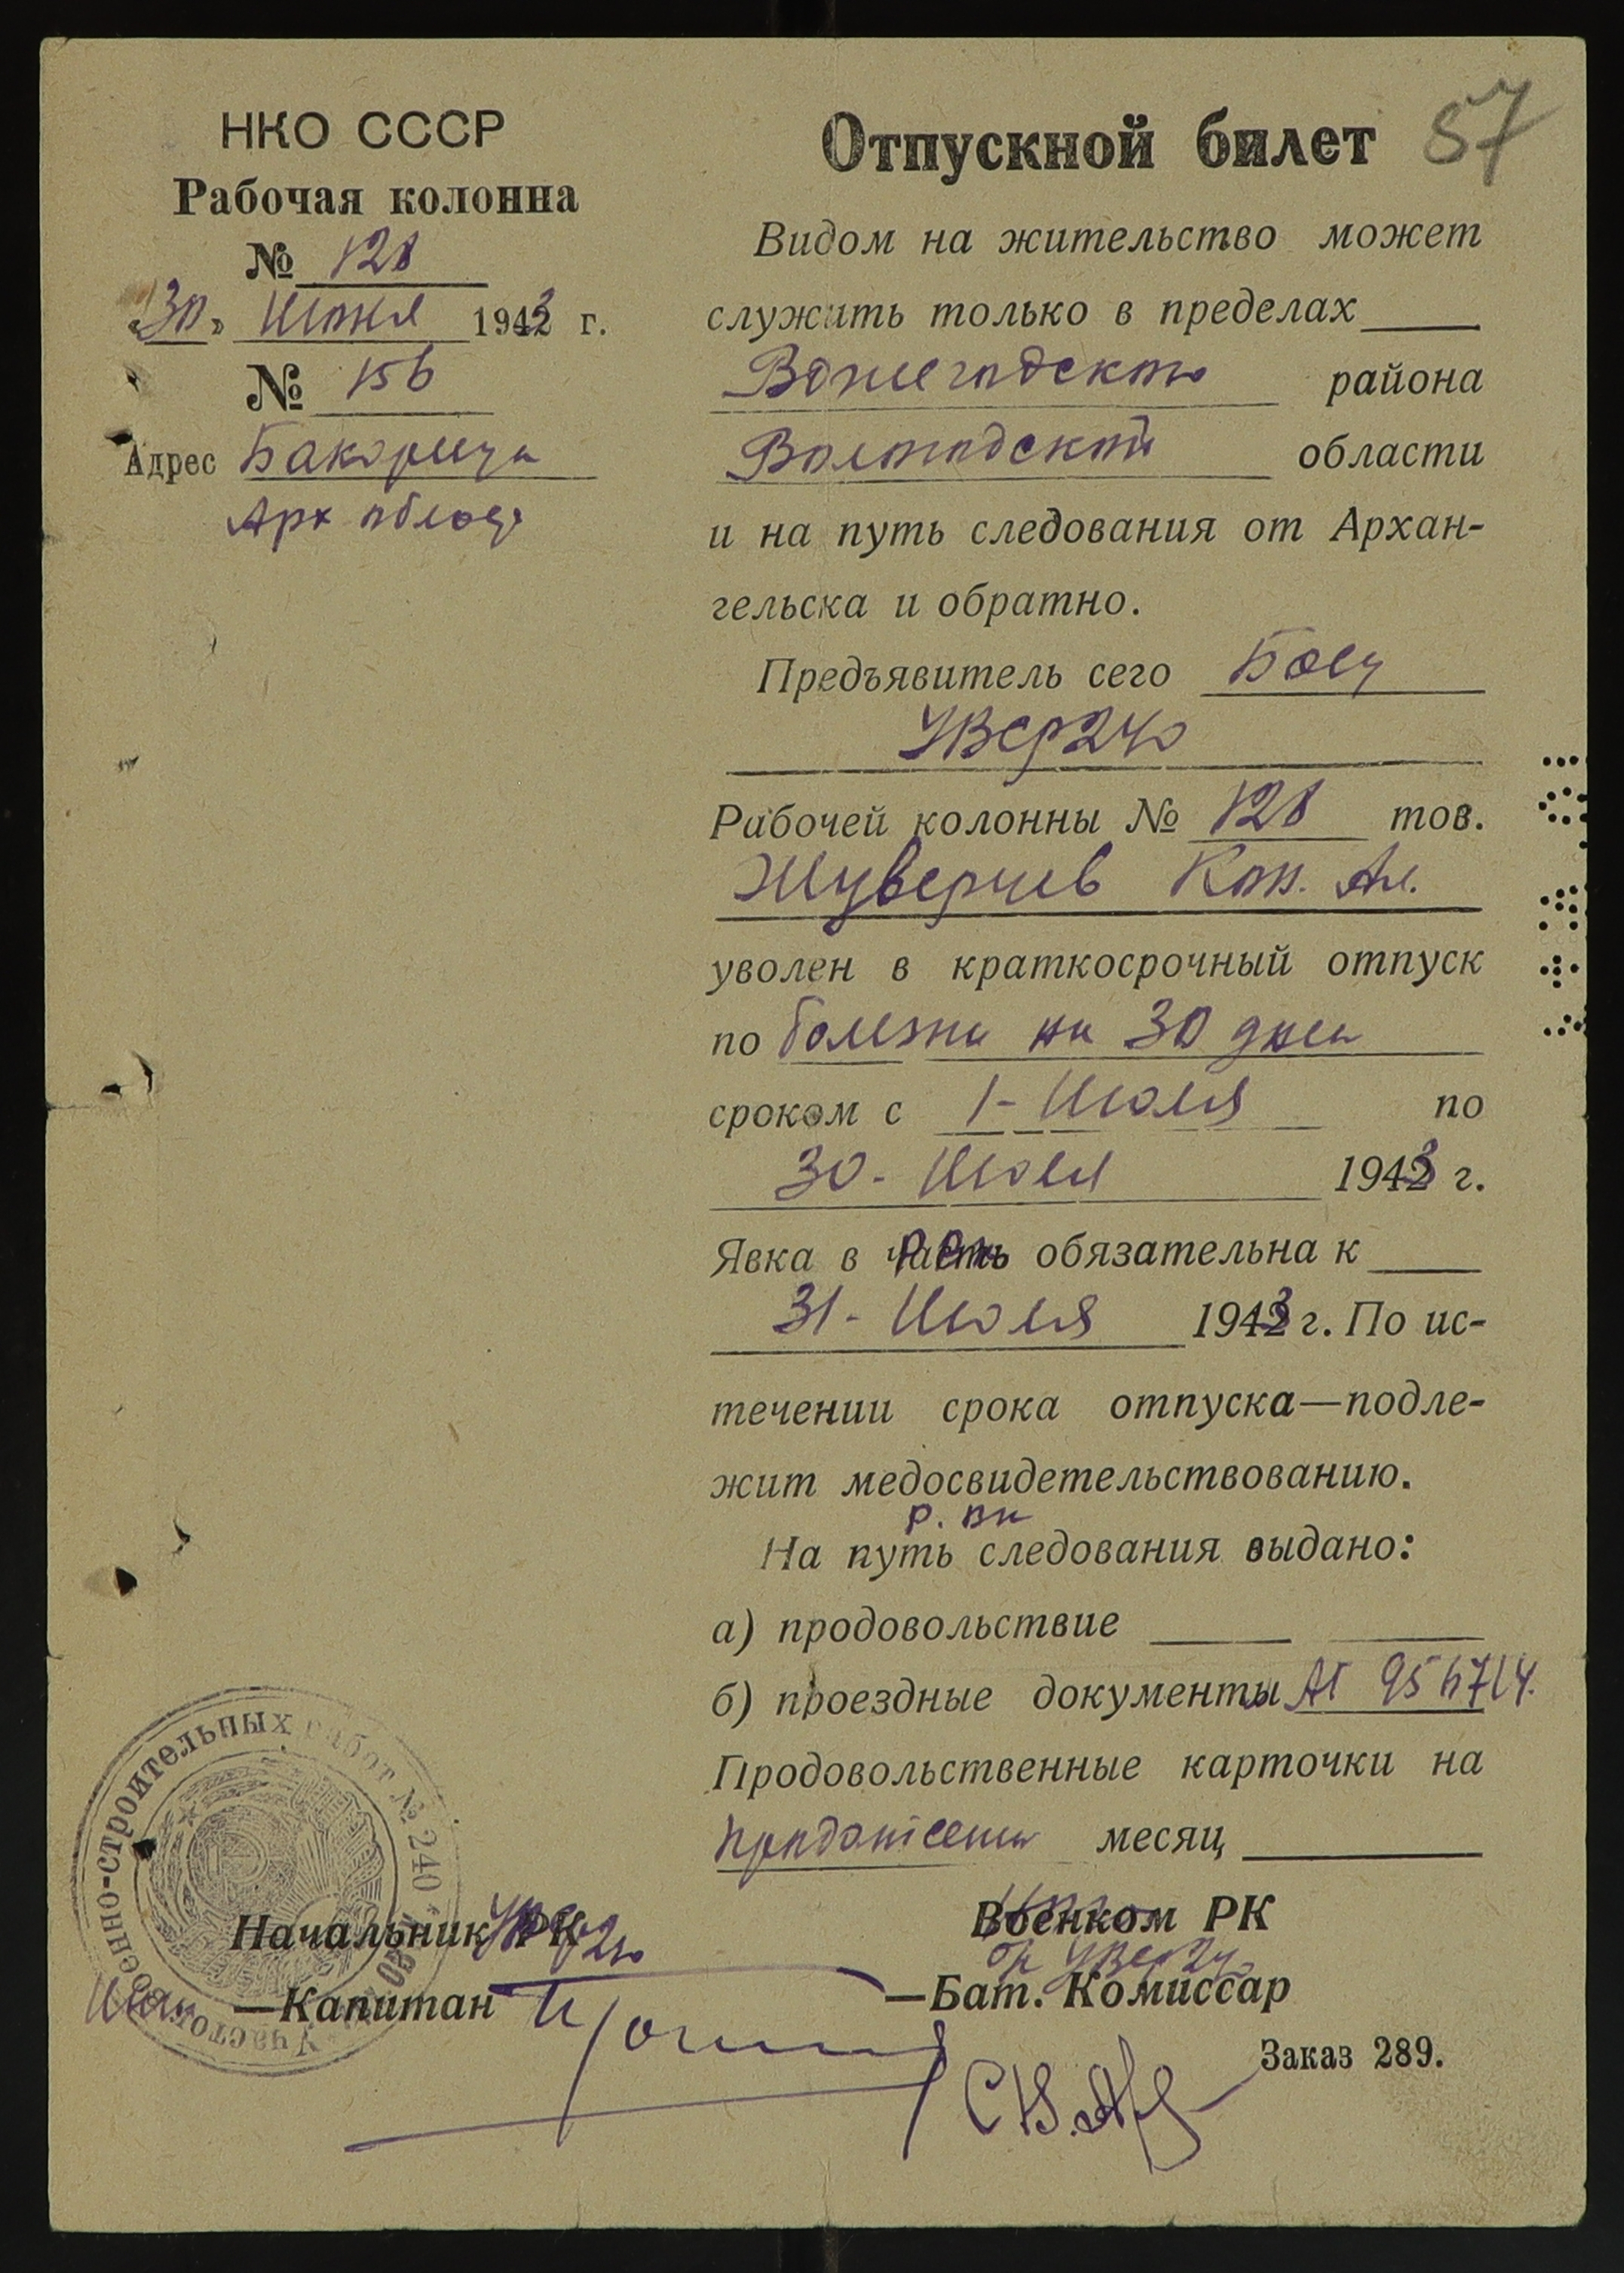 57
НКО СССР
Рабочая колонна
№ 128
«30» Июня 1943 г.
№ 156
Адрес Бакорица
Арх
Отпускной билет
Видом на жительство может
служить только в пределах
Вожегодского района
Вологодской области
и на путь следования от Архан-
гельска и обратно.
Предъявитель сего Боец
УВСР240
Рабочей колонны № 128 тов.
Кон. Ал.
уволен в краткосрочный отпуск
по болезни на 30 дней
сроком с 1- Июля по
30- Июля 1943 г.
Явка в обязательна к
31- Июля 1943 г. По ис-
течении срока отпуска—подле-
жит медосвидетельствованию.
На путь следования выдано:
а) продовольствие
б) проездные документы
Продовольственные карточки на
месяц
Начальник РК
—Капитан
Военком РК
—Бат. Комиссар
Заказ 289.
Участок военно-строительных работ № 240